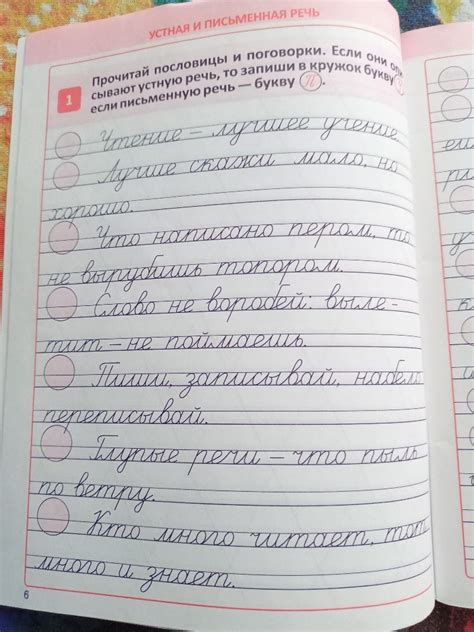 УСТНАЯ И ПИСЬМЕННАЯ РЕЧЬ
1 Прочитай пословицы и поговорки. Если они
сывают устную речь, то запиши в кружок букву
если письменную речь — букву П.
Чтение – лучшее учение.
Лучше скажи мало, но
хорошо.
Что написано пером, то
не вырубишь топором.
Слово не воробей: выле-
тит – не поймаешь.
Пиши, записывай, набело
переписывай.
Глупые речи – что пыль
по ветру.
Кто много читает, тот
много и знает.
6